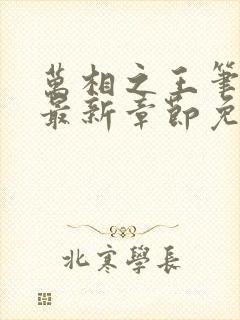 萬相之王筆
最新章節免
北寒學長